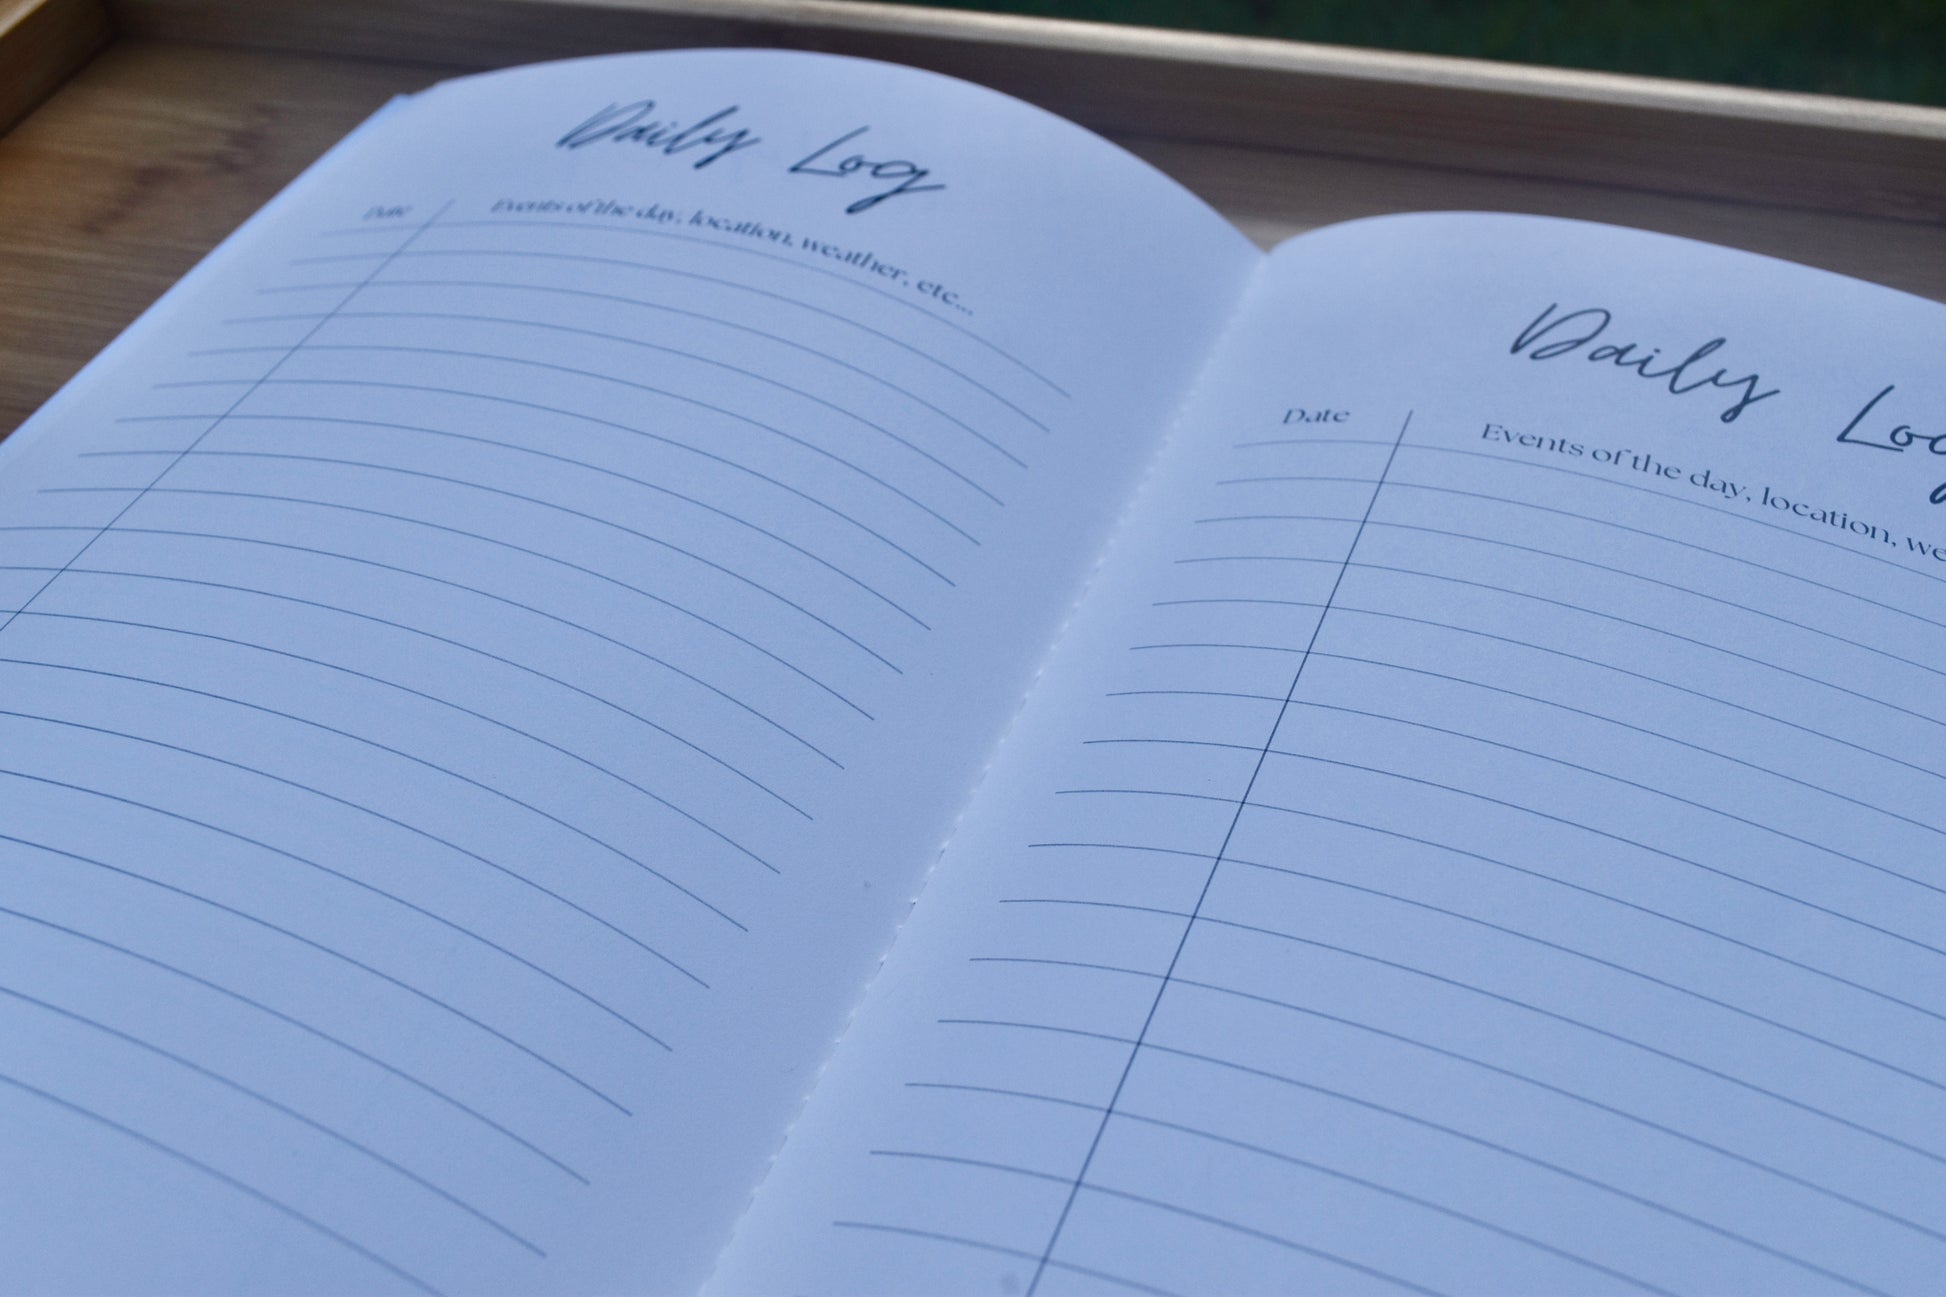 Daily Log
Date Events of the day, location, weather, etc...
Daily Log
Date Events of the day, location, we